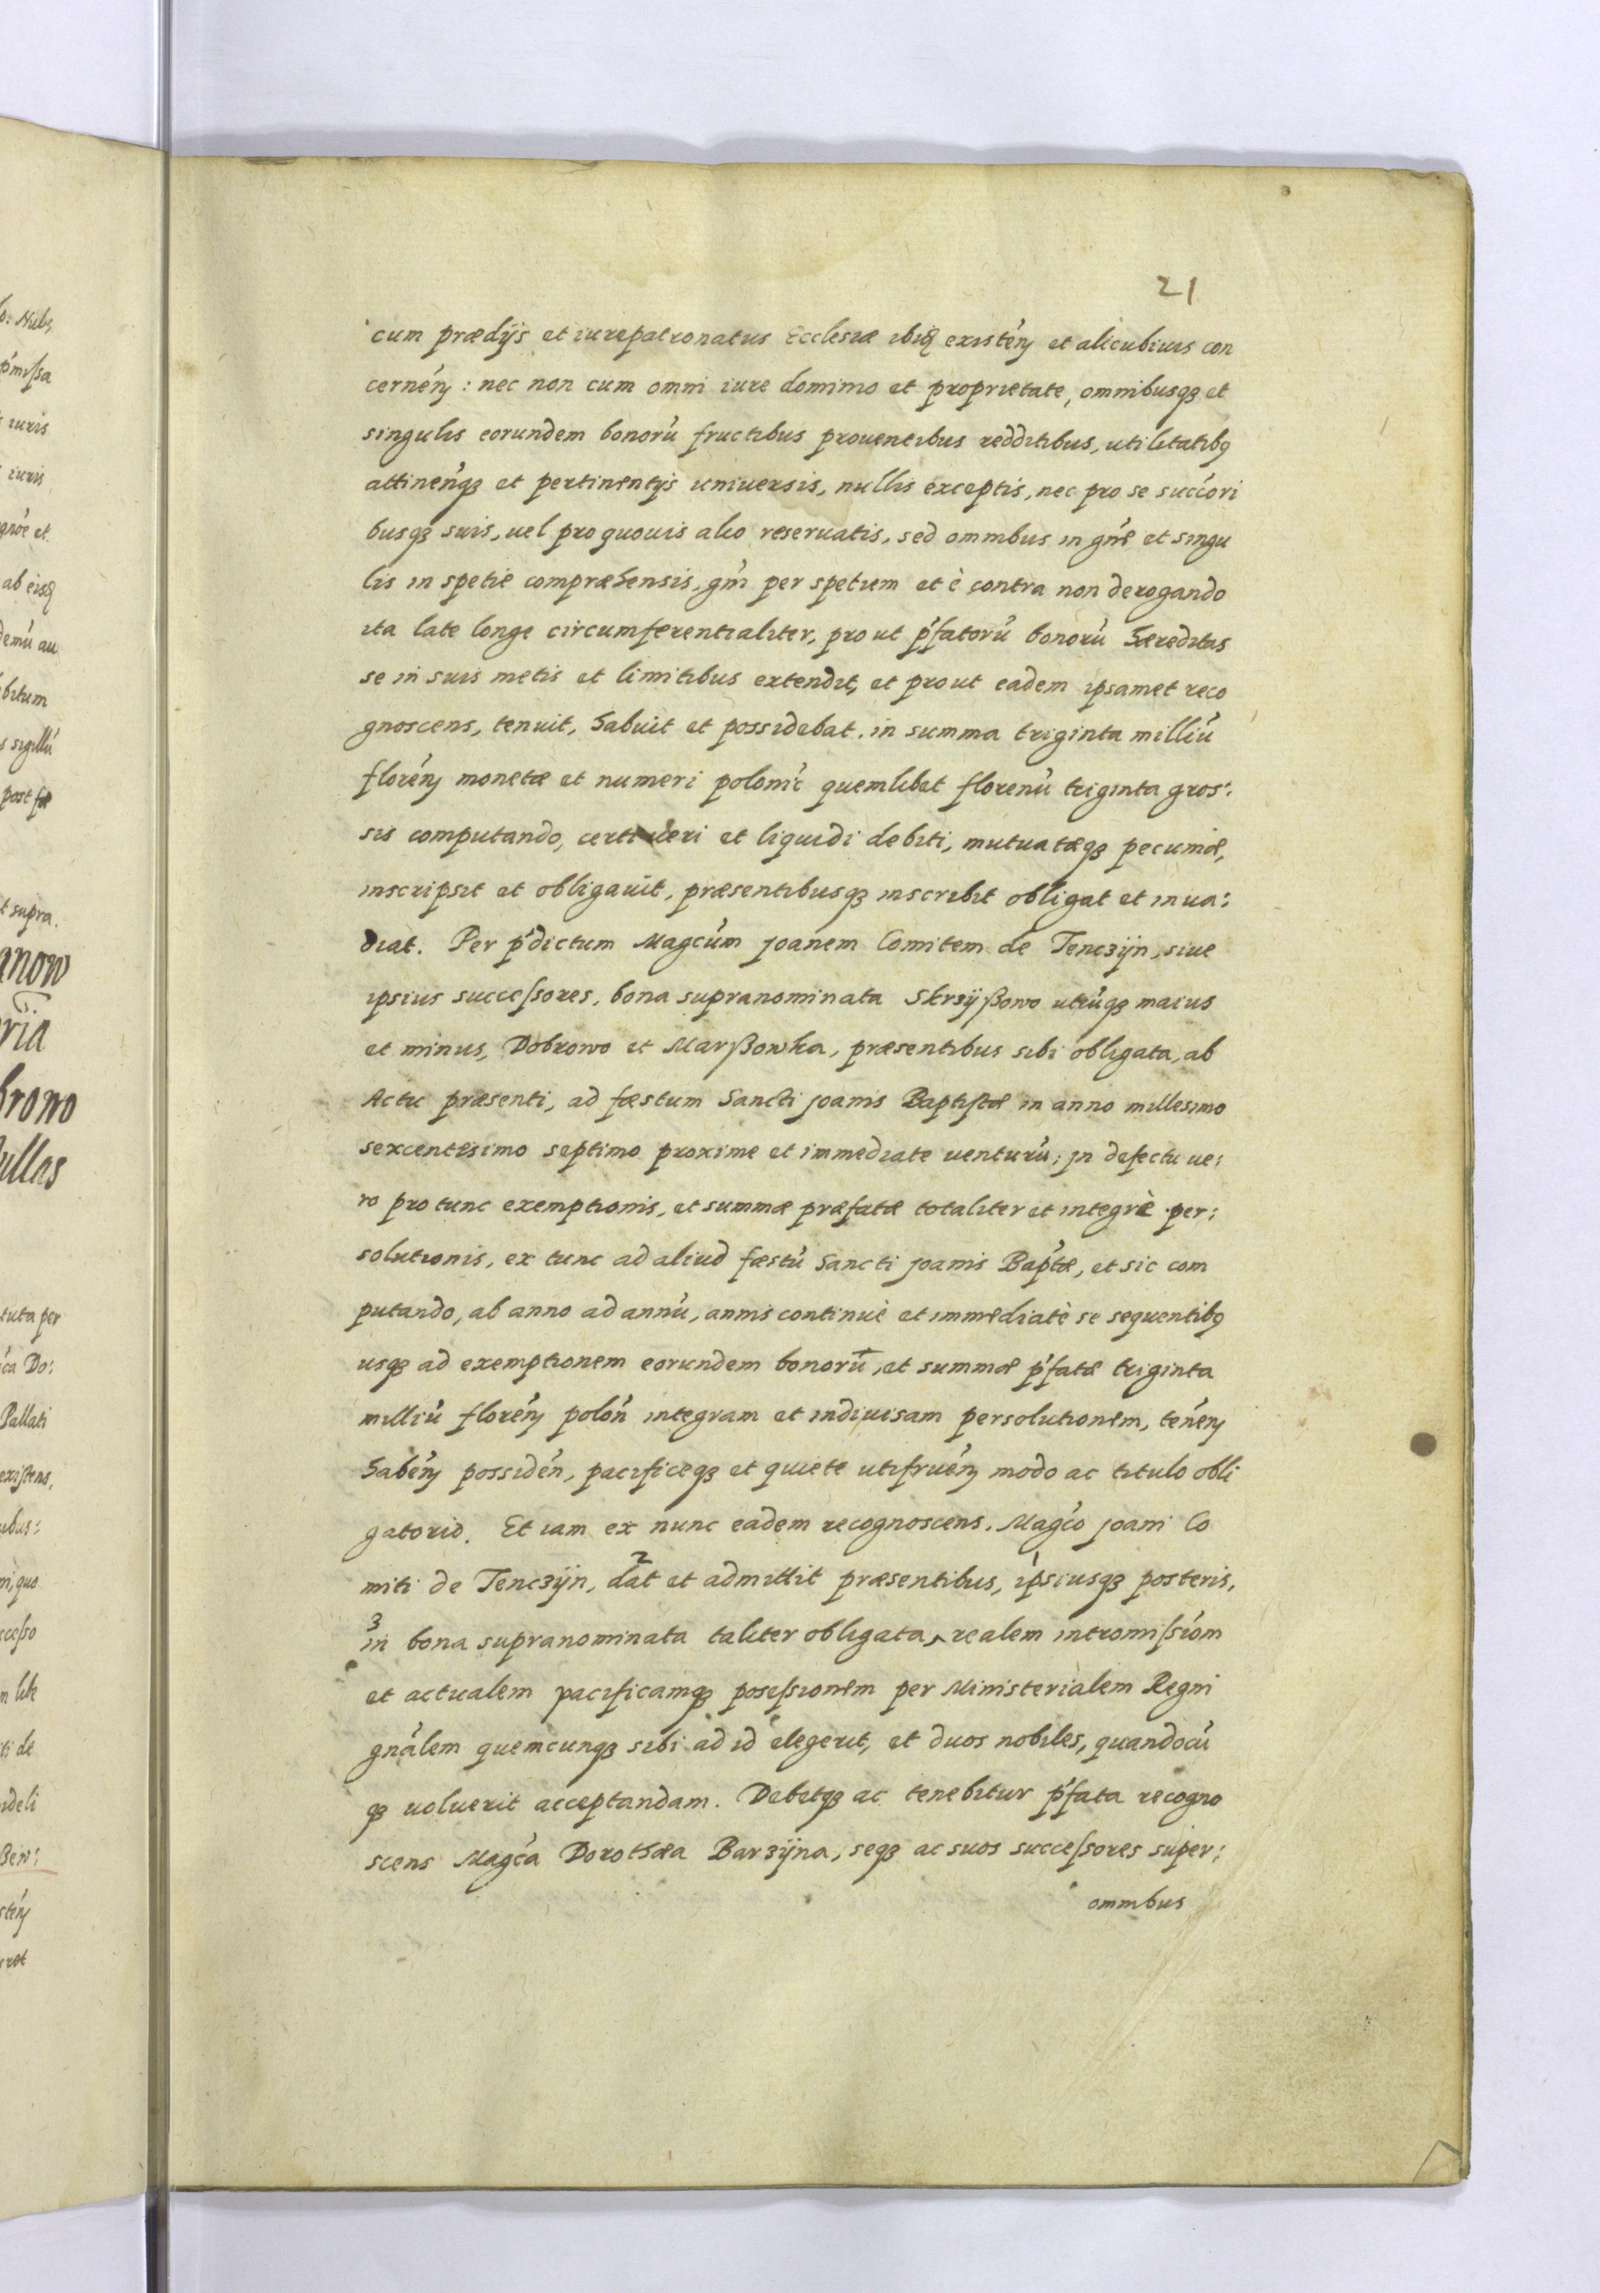 21
cum prædijs et iurepatronatus Ecclesiæ ibiq existen̄ et alicubiuis con
cernen̄: nec non cum omni iure dominio et proprietate, omnibusqȝ et
singulis eorundem bonorū fructibus prouentibus redditibus, utilitatibq
attinen̄qȝ et pertinentijs uniuersis, nullis exceptis, nec pro se succori
busqȝ suis, uel pro quouis alio reseruatis, sed omnibus in gn̄e et singu
lis in spetie compræhensis, gn̄i per spetiem et è contra non derogando
ita late longe circumferentialiter, prout p̄fatorū bonorū hæreditas
se in suis metis et limitibus extendit, et prout eadem ipsamet reco
gnoscens, tenuit, habuit et possidebat. in summa triginta milliū
floren̄ monetæ et numeri polonic̄ quemlibet florenū triginta gros:
sis computando, certi ueri et liquidi debiti, mutuatæqȝ pecuniæ,
inscripsit et obligauit, præsentibusqȝ inscribit obligat et inua:
diat. Per p̄dictum Magcūm Joanem Comitem de Tenczijn, siue
ipsius successores, bona supranominata Skrzijßowo utrūqȝ maius
et minus, Dobrowo et Marßowka, præsentibus sibi obligata, ab
Actu præsenti, ad fæstum Sancti Joanis Baptistæ in anno millesimo
sexcentesimo septimo proxime et immediate uenturū; in defectu ue:
ro pro tunc exemptionis, et summæ præfatæ totaliter et integrè per:
solutionis, ex tunc ad aliud fæstū Sancti Joanis Bap̄tæ, et sic com
putando, ab anno ad annū, annis continuè et immediatè se sequentibq
usqȝ ad exemptionem eorundem bonorū, et summæ p̄fatæ triginta
milliū floren̄ polon̄ integram et indiuisam persolutionem, tenen̄
haben̄ possiden̄, pacificeqȝ et quiete utifruen̄ modo ac titulo obli
gatorio. Et iam ex nunc eadem recognoscens. Magc̄o Joani Co
miti de Tenczijn, 2 dat et admittit præsentibus, 1 ipsiusqȝ posteris,
3 in bona supranominata taliter obligata, realem intromissiōm
et actualem pacificamqȝ posessionem per Ministerialem Regni
gnālem quemcunqȝ sibi ad id elegerit, et duos nobiles, quandocū
qȝ uoluerit acceptandam. Debetqȝ ac tenebitur p̄fata recogno
scens Magc̄a Dorothæa Barzijna, seqȝ ac suos successores super:
omnibus